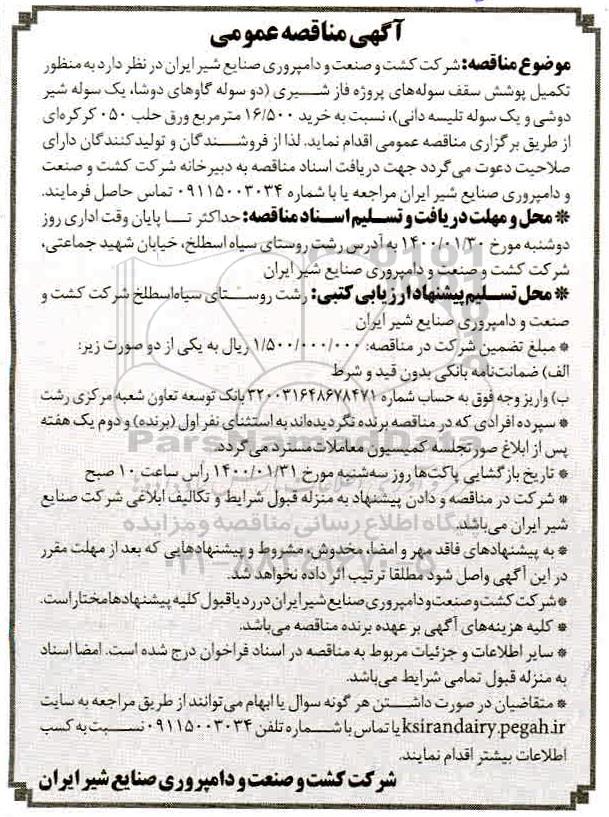 آگهی مناقصه عمومی
موضوع مناقصه: شرکت کشت و صنعت و دامپروری صنایع شیر ایران در نظر دارد به منظور
تکمیل پوشش سقف سوله‌های پروژه فاز شیری (دو سوله گاوهای دوشا، یک سوله شیر
دوشی و یک سوله تلیسه دانی)، نسبت به خرید ۱۶/۵۰۰ مترمربع ورق حلب ۰۵۰ کرکره‌ای
از طریق برگزاری مناقصه عمومی اقدام نماید. لذا از فروشندگان و تولیدکنندگان دارای
صلاحیت دعوت می‌گردد جهت دریافت اسناد مناقصه به دبیرخانه شرکت کشت و صنعت
و دامپروری صنایع شیر ایران مراجعه یا با شماره ۰۹۱۱۵۰۰۳۰۳۴ تماس حاصل فرمایند.
* محل و مهلت دریافت و تسلیم اسناد مناقصه: حداکثر تا پایان وقت اداری روز
دوشنبه مورخ ۱۴۰۰/۰۱/۳۰ به آدرس رشت روستای سیاه اسطلخ، خیابان شهید جماعتی،
شرکت کشت و صنعت و دامپروری صنایع شیر ایران
* محل تسلیم پیشنهاد ارزیابی کتبی: رشت روستای سیاه‌اسطلخ شرکت کشت و
صنعت و دامپروری صنایع شیر ایران
* مبلغ تضمین شرکت در مناقصه: ۱/۵۰۰/۰۰۰/۰۰۰ ریال به یکی از دو صورت زیر:
الف) ضمانت‌نامه بانکی بدون قید و شرط
ب) واریز وجه فوق به حساب شماره ۳۲۰۰۳۱۶۴۸۶۷۸۴۷۱ بانک توسعه تعاون شعبه مرکزی رشت
* سپرده افرادی که در مناقصه برنده نگردیده‌اند به استثنای نفر اول (برنده) و دوم یک هفته
پس از ابلاغ صورتجلسه کمیسیون معاملات مسترد می‌گردد.
* تاریخ بازگشایی پاکت‌ها روز سه‌شنبه مورخ ۱۴۰۰/۰۱/۳۱ راس ساعت ۱۰ صبح
* شرکت در مناقصه و دادن پیشنهاد به منزله قبول شرایط و تکالیف ابلاغی شرکت صنایع
شیر ایران می‌باشد.
* به پیشنهادهای فاقد مهر و امضا، مخدوش، مشروط و پیشنهادهایی که بعد از مهلت مقرر
در این آگهی واصل شود مطلقا ترتیب اثر داده نخواهد شد.
* شرکت کشت و صنعت و دامپروری صنایع شیر ایران در رد یا قبول کلیه پیشنهادها مختار است.
* کلیه هزینه‌های آگهی بر عهده برنده مناقصه می‌باشد.
* سایر اطلاعات و جزئیات مربوط به مناقصه در اسناد فراخوان درج شده است. امضا اسناد
به منزله قبول تمامی شرایط می‌باشد.
* متقاضیان در صورت داشتن هر گونه سوال یا ابهام می‌توانند از طریق مراجعه به سایت
ksirandairy.pegah.ir یا تماس با شماره تلفن ۰۹۱۱۵۰۰۳۰۳۴ نسبت به کسب
اطلاعات بیشتر اقدام نمایند.
شرکت کشت و صنعت و دامپروری صنایع شیر ایران